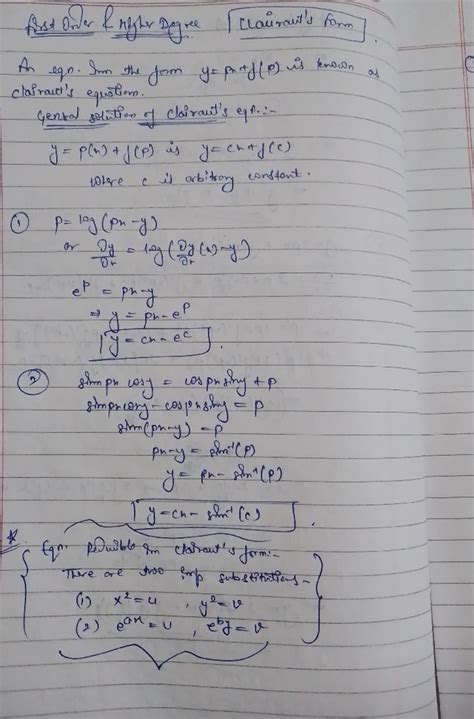 First Order & Higher Degree
Clairaut's Form
An eqn. In the form y = px + f(p) is known as
clairaut's equation.
General solution of clairaut's eqn. :-
y = p(x) + f(p) is y = cx + f(c)
where c is arbitrary constant.
① p = log (px - y)
or ∂y/∂x = log (∂y/∂x (x) - y)
e^p = px - y
⇒ y = px - e^p
y = cx - e^c
② sinpx cosy = cospx siny + p
sinpx cosy - cospx siny = p
sin(px - y) = p
px - y = sin⁻¹(p)
y = px - sin⁻¹(p)
y = cx - sin⁻¹(c)
Eqn. Reducible In clairaut's form:-
There are two imp substitutions -
(1) x² = u , y² = v
(2) e^ax = u , e^by = v